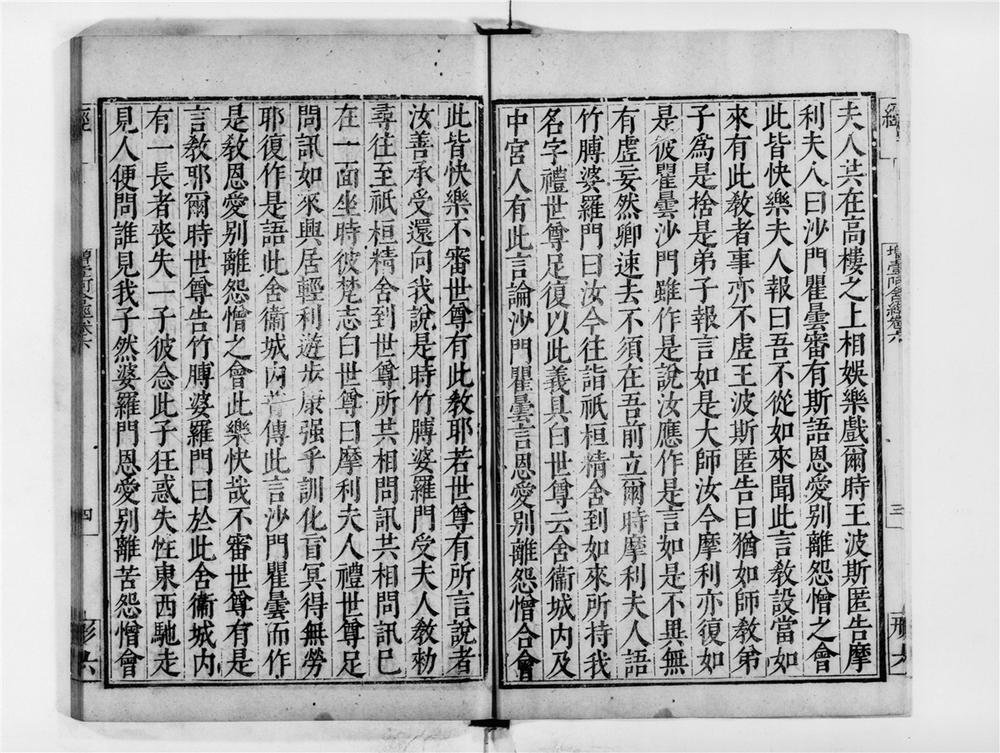 夫人共在高樓之上相娛樂戲爾時王波斯匿告摩
利夫人曰沙門瞿曇審有斯語恩愛別離怨憎之會
此皆快樂夫人報曰吾不從如來聞此言教設當如
來有此教者事亦不虛王波斯匿告曰猶如師教弟
子爲是捨是弟子報言如是大師汝今摩利亦復如
是彼瞿曇沙門雖作是說汝應作是言如是不異無
有虛妄然卿速去不須在吾前立爾時摩利夫人語
竹膊婆羅門曰汝今往詣祇桓精舍到如來所持我
名字禮世尊足復以此義具白世尊云舍衞城內及
中宮人有此言論沙門瞿曇言恩愛別離怨憎合會
經
增壹阿含經卷六
三
形六
此皆快樂不審世尊有此教耶若世尊有所言說者
汝善承受還向我說是時竹膊婆羅門受夫人教勑
尋往至祇桓精舍到世尊所共相問訊共相問訊已
在一面坐時彼梵志白世尊曰摩利夫人禮世尊足
問訊如來興居輕利遊步康强乎訓化盲冥得無勞
耶復作是語此舍衞城內普傳此言沙門瞿曇而作
是教恩愛別離怨憎之會此樂快哉不審世尊有是
言教耶爾時世尊告竹膊婆羅門曰於此舍衞城內
有一長者喪失一子彼念此子狂惑失性東西馳走
見人便問誰見我子然婆羅門恩愛別離苦怨憎會
經
增壹阿含經卷六
四
形六